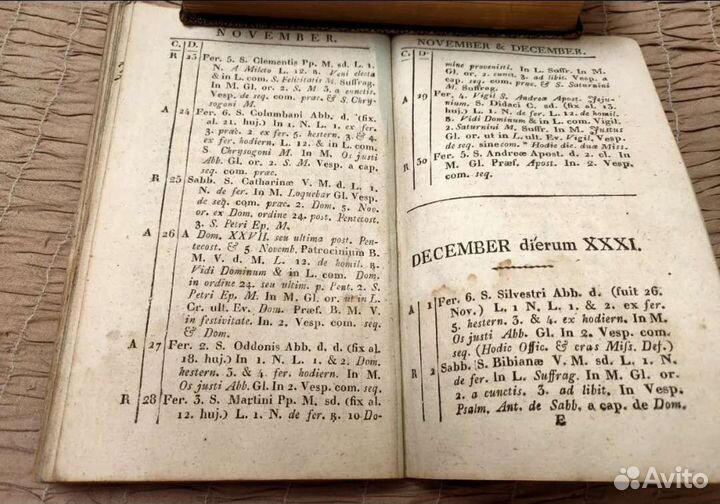 NOVEMBER.
C. D.
R 23 Fer. 5. S. Clementis Pp. M. sd. L. 1.
N. A Mileto L. 12. R. Veni electa
& in L. com. S. Felicitatis M. Suffrag.
In M. Gl. or. 2. S. M 3. a cunctis
Vesp. de seq. com. præc. & S. Chry-
sogoni M.
A 24 Fer. 6. S. Columbani Abb. d. (fix.
al. 21. huj.) In 1. N. L. 1. ex fer.
3. præc. 2. ex fer. 5. hestern. 3. & 4.
ex fer. hodiern. L. 12. & in L. com.
S. Chrysogoni M. In M. Os justi
Abb. Gl. or. 2. S. M. Vesp. a cap.
seq. com. præc.
R 25 Sabb. S. Catharinæ V. M. d. L. 1.
N. de fer. In M. Loquebar Gl. Vesp.
de seq. com. præc. 2. Dom. 5. Nov.
or. ex Dom. ordine 24. post. Pentecost.
3. S. Petri Ep. M.
A 26 A Dom. XXVII. seu ultima post. Pen-
tecost. & 5 Novemb. Patrocinium B.
M. V. d. M. L. 12. de homil. R.
Vidi Dominum & in L. com. Dom.
in ordine 24. seu ultim. p. Pent. 2. S.
Petri Ep. M. In M. Gl. or. ut in L.
Cr. ult. Ev. Dom. Præf. B. M. V.
in festivitate. In. 2. Vesp. com. seq.
& Dom.
A 27 Fer. 2. S. Oddonis Abb. d. d. (fix al.
18. huj.) In 1. N. L. 1. & 2. Dom.
hestern. 3. & 4. fer. hodiern. In M.
Os justi Abb. Gl. In 2. Vesp. com. seq.
R 28 Fer. 3. S. Martini Pp. M. sd. (fix al.
12. huj.) L. 1. N. de fer. R. 10 Do-
NOVEMBER & DECEMBER.
C. D.
mine prevenisti. In L. Suffr. In M.
Gl. or. 2. cunct. 3. ad libit. Vesp. a
cap. seq. com. præc. & S. Saturnini
M. Suffrag.
A 29 Fer. 4. Vigil S. Andreæ Apost. Jeju-
nium. S. Didaci C. sd. (fix al. 13.
huj.) L. 1. N. de fer. L. 12. de homil.
R. Vidi Dominum & in L. com. Vigil.
2. Saturnini M. Suffr. In M. Justus
Gl. or. ut in L. ult. Ev. Vigil. Vesp.
de seq. sine com. * Hodie dic. duæ Miss.
R 30 Fer. 5. S. Andreæ Apost. d. 2. cl. In
M. Gl. Præf. Apost. In 2. Vesp.
com. seq.
DECEMBER dierum XXXI.
A 1 Fer. 6. S. Silvestri Abb. d. (fuit 26.
Nov.) L. 1 N. L. 1. & 2. ex fer.
5. hestern. 3. & 4. ex hodiern. In M.
Os justi Abb. Gl. In 2. Vesp. com.
seq. (Hodic Offic. & cras Miss. Def.)
R 2 Sabb. S. Bibianæ V. M. sd. L. 1. N.
de fer. In L. Suffrag. In M. Gl. or.
2. a cunctis. 3. ad libit. In Vesp.
Psalm. Ant. de Sabb. a cap. de Dom.
E
Avito